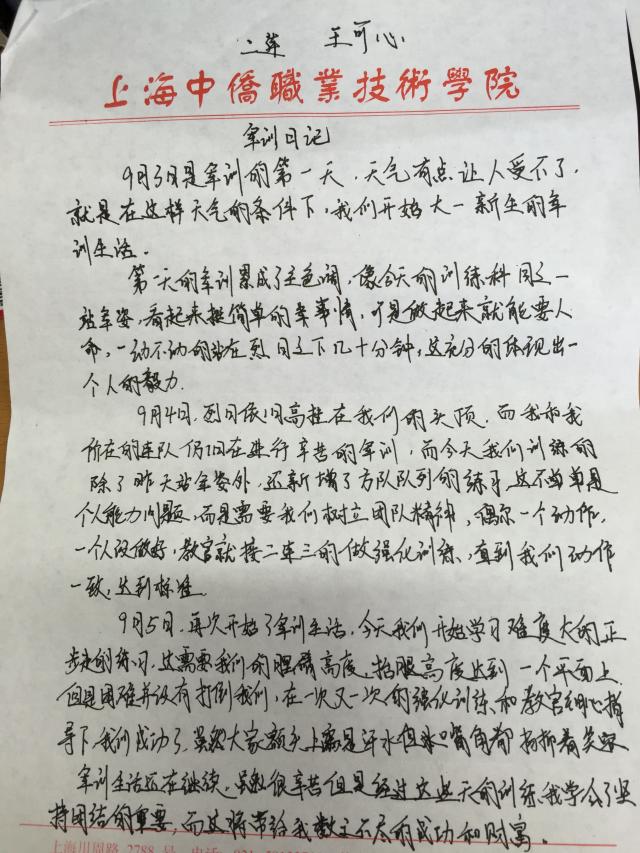 二连 王可心
上海中僑職業技術學院
军训日记
9月3日是军训的第一天,天气有点让人受不了,
就是在这样天气的条件下,我们开始大一新生的军
训生活。
第一天的军训累成了主色调,像今天的训练科目之一
站军姿,看起来挺简单的一件事情,可是做起来就能要人
命,一动不动的站在烈日之下几十分钟,这充分的体现出一
个人的毅力.
9月4日,烈日依旧高挂在我们的头顶.而我和我
所在的连队仍旧在进行辛苦的军训,而今天我们训练的
除了昨天站军姿外,还新增了方队队列的练习,这不单单是
个人能力问题,而是需要我们树立团队精神,偶尔一个动作,
一个人没做好,教官就接二连三的做强化训练、直到我们动作
一致,达到标准.
9月5日,再次开始了军训生活,今天我们开始学习难度大的正
步走的练习,这需要我们的摆臂高度、抬腿高度达到一个平面上.
但是困难并没有打倒我们,在一次又一次的强化训练、和教官细心指
导下,我们成功了.虽然大家额头上满是汗水但嘴角都扬抑着笑
军训生活还在继续,虽然很辛苦但是经过这些天的训练我学会了坚
持团结的重要,而这将带给我数之不尽的成功和财富。
上海川周路 2788 号 电话